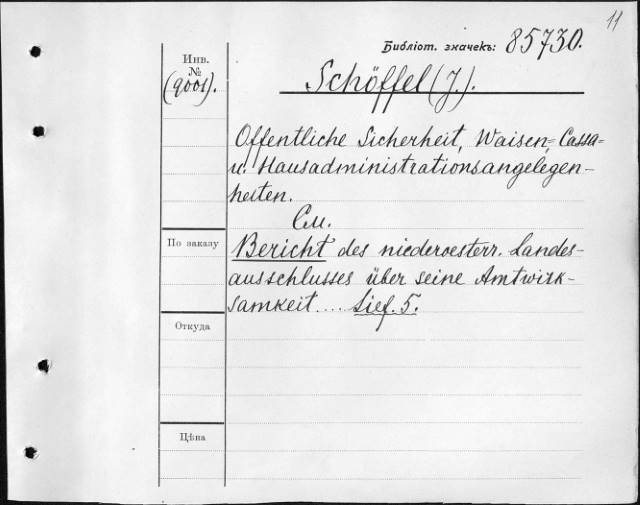 11
Библіот. значекъ: 85730.
Инв.
№
(9001).
Schöffel (J.).
Öffentliche Sicherheit, Waisen-, Cassa-
u. Hausadministrationsangelegen-
heiten.
См.
По заказу
Bericht des niederoesterr. Landes-
ausschlusses über seine Amtwirk-
samkeit.... Lief. 5.
Откуда
Цѣна